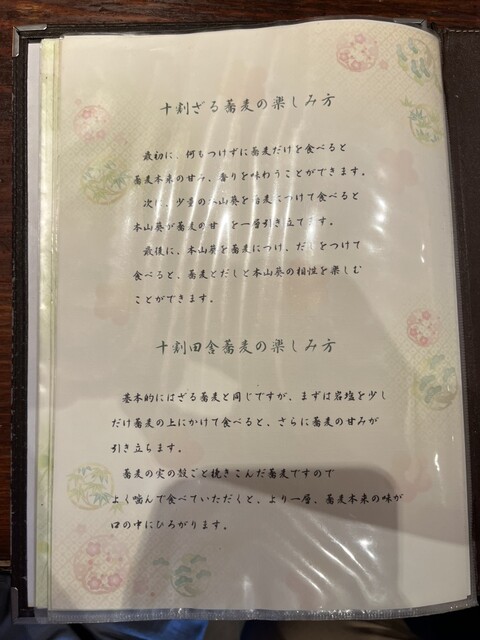 十割ざる蕎麦の楽しみ方
最初に、何もつけずに蕎麦だけを食べると
蕎麦本来の甘み、香りを味わうことができます。
次に、少量の本山葵を蕎麦につけて食べると
本山葵が蕎麦の甘みを一層引き立てます。
最後に、本山葵を蕎麦につけ、だしをつけて
食べると、蕎麦とだしと本山葵の相性を楽しむ
ことができます。
十割田舎蕎麦の楽しみ方
基本的にはざる蕎麦と同じですが、まずは岩塩を少し
だけ蕎麦の上にかけて食べると、さらに蕎麦の甘みが
引き立ちます。
蕎麦の実の殻ごと挽きこんだ蕎麦ですので
よく噛んで食べていただくと、より一層、蕎麦本来の味が
口の中にひろがります。